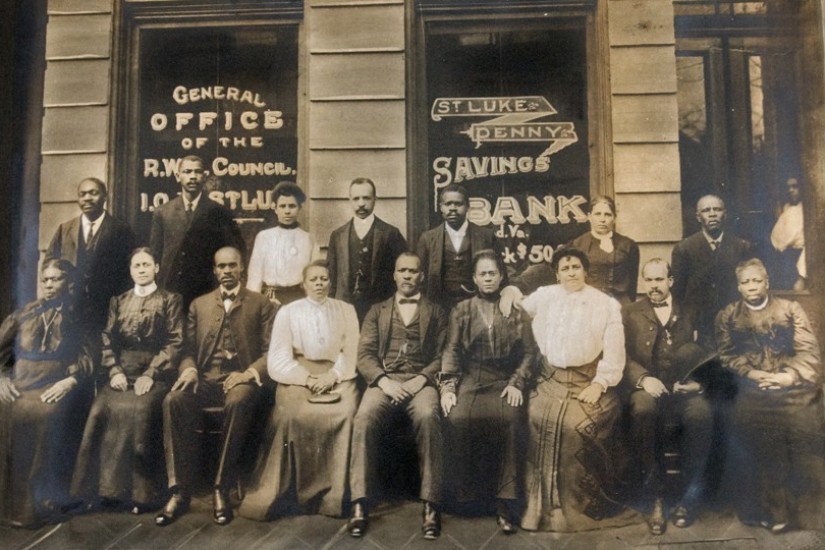 GENERAL
OFFICE
OF THE
R.W. COUNCIL.
I.O. ST LU
ST LUKE
PENNY
SAVINGS
BANK
$50